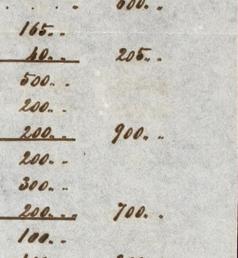 600..
165..
40.. 205..
500..
200..
200.. 900..
200..
300..
200... 700..
100..